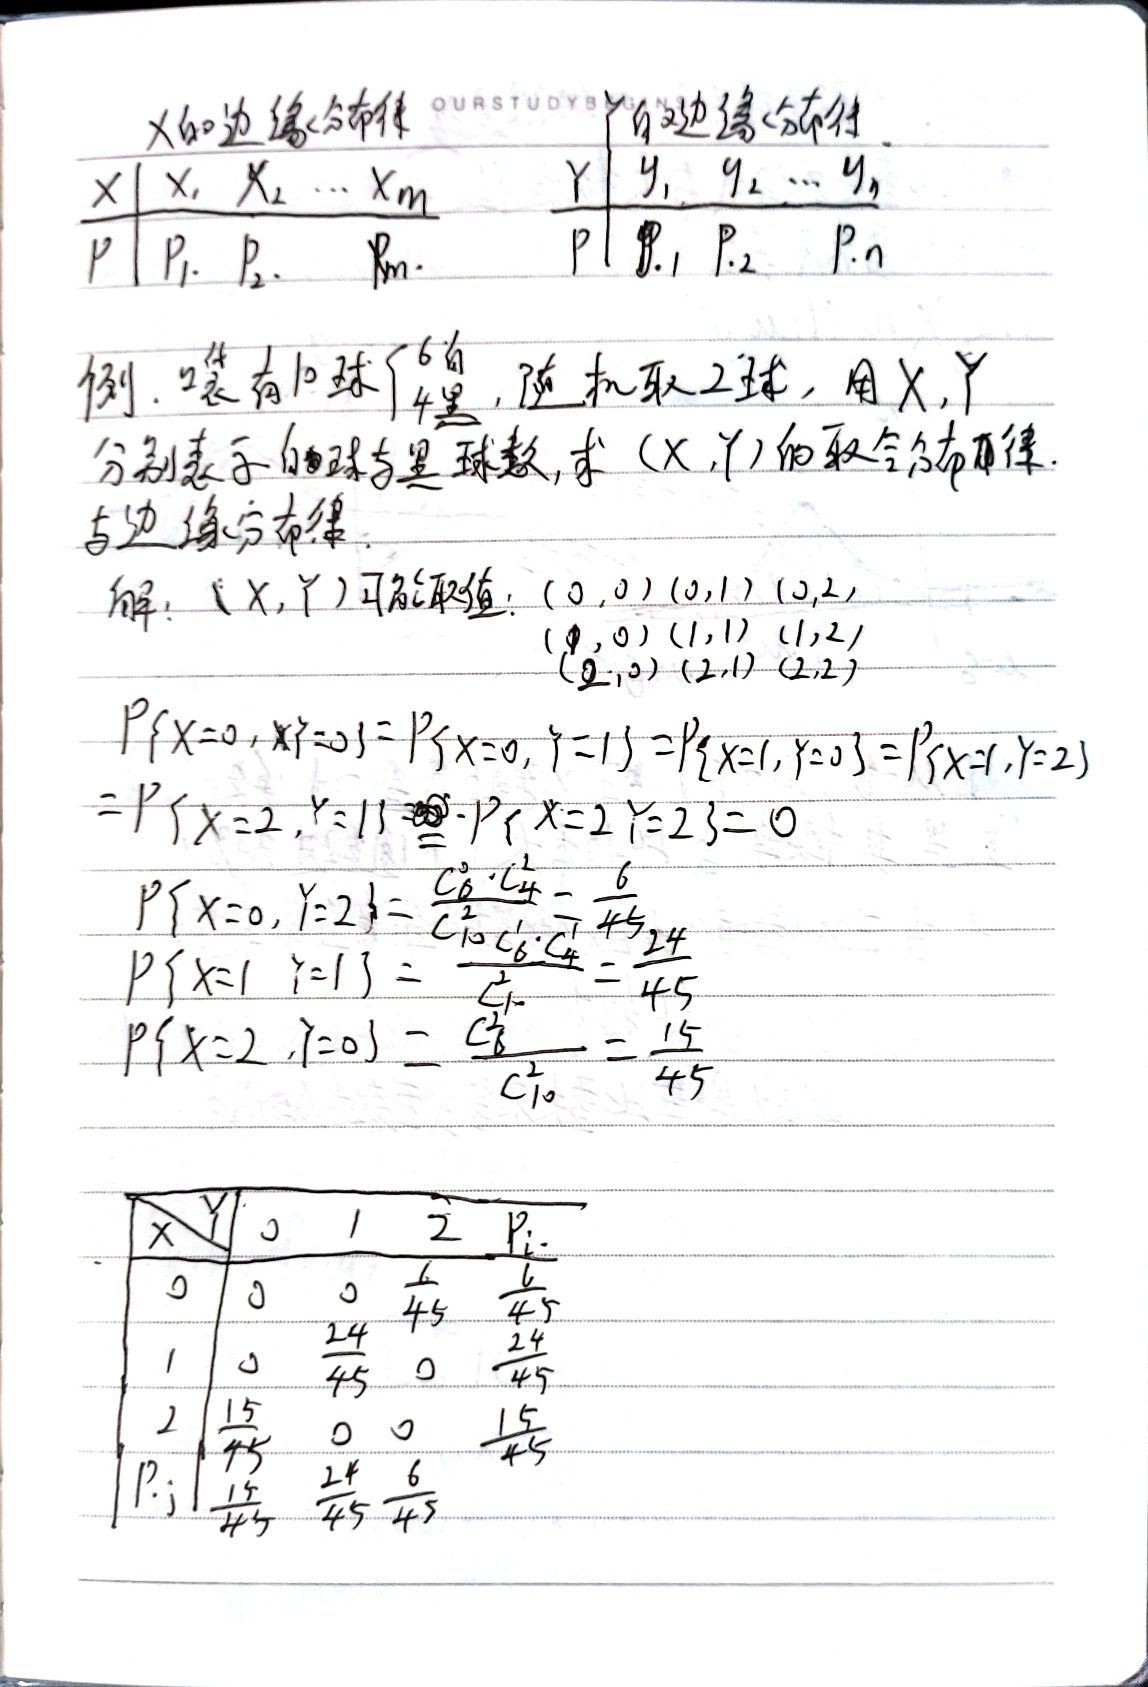 OURSTUDYBEGIN
X的边缘分布律 Y的边缘分布律.
X | X₁ X₂ … Xm Y | y₁ y₂ … yn
P | P₁. P₂. Pm. P | P.₁ P.₂ P.n
例. 口袋有10球{6白 4黑, 随机取2球, 用X,Y
分别表示白球与黑球数, 求 (X,Y)的联合分布律.
与边缘分布律.
解: (X,Y)可能取值: (0,0) (0,1) (0,2)
(1,0) (1,1) (1,2)
(2,0) (2,1) (2,2)
P{X=0, Y=0} = P{X=0, Y=1} = P{X=1, Y=0} = P{X=1, Y=2}
= P{X=2, Y=1} = P{X=2 Y=2} = 0
P{X=0, Y=2} = C₆⁰·C₄²/C₁₀² = 6/45
P{X=1 Y=1} = C₆¹·C₄¹/C₁₀² = 24/45
P{X=2, Y=0} = C₆²/C₁₀² = 15/45
X\Y 0 1 2 Pi.
0 0 0 6/45 6/45
1 0 24/45 0 24/45
2 15/45 0 0 15/45
P.j 15/45 24/45 6/45